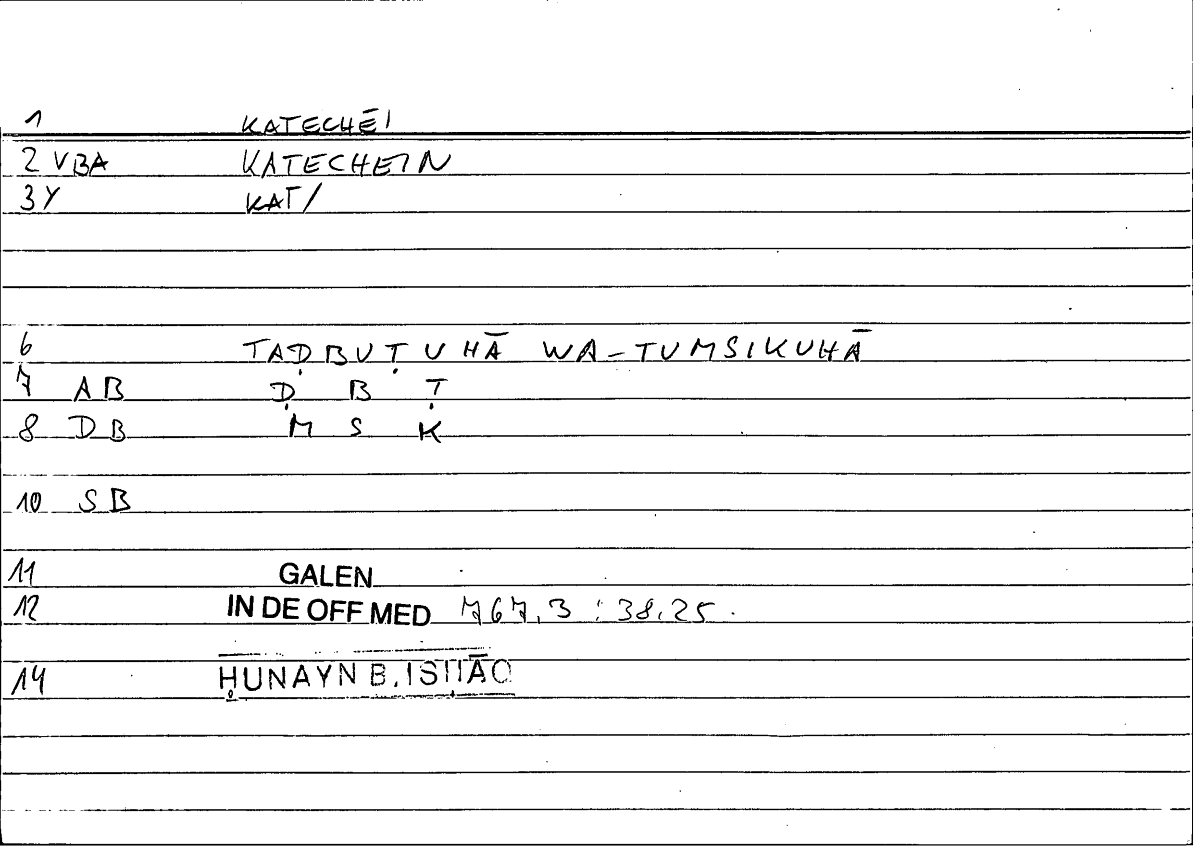 1 KATECHĒI
2 VBA KATECHEIN
3Y KAT/
6 TAḌBUṬUHĀ WA-TUMSIKUHĀ
7 AB Ḍ B Ṭ
8 DB M S K
10 SB
11 GALEN
12 IN DE OFF MED 767,3 : 38.25.
14 ḤUNAYN B. ISḤĀQ